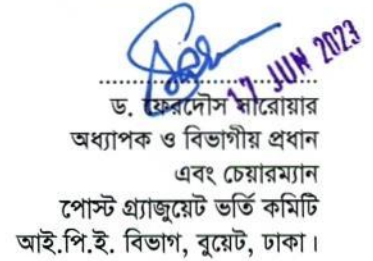 17 JUN 2023
ড. ফেরদৌস সারোয়ার
অধ্যাপক ও বিভাগীয় প্রধান
এবং চেয়ারম্যান
পোস্ট গ্র্যাজুয়েট ভর্তি কমিটি
আই.পি.ই. বিভাগ, বুয়েট, ঢাকা।